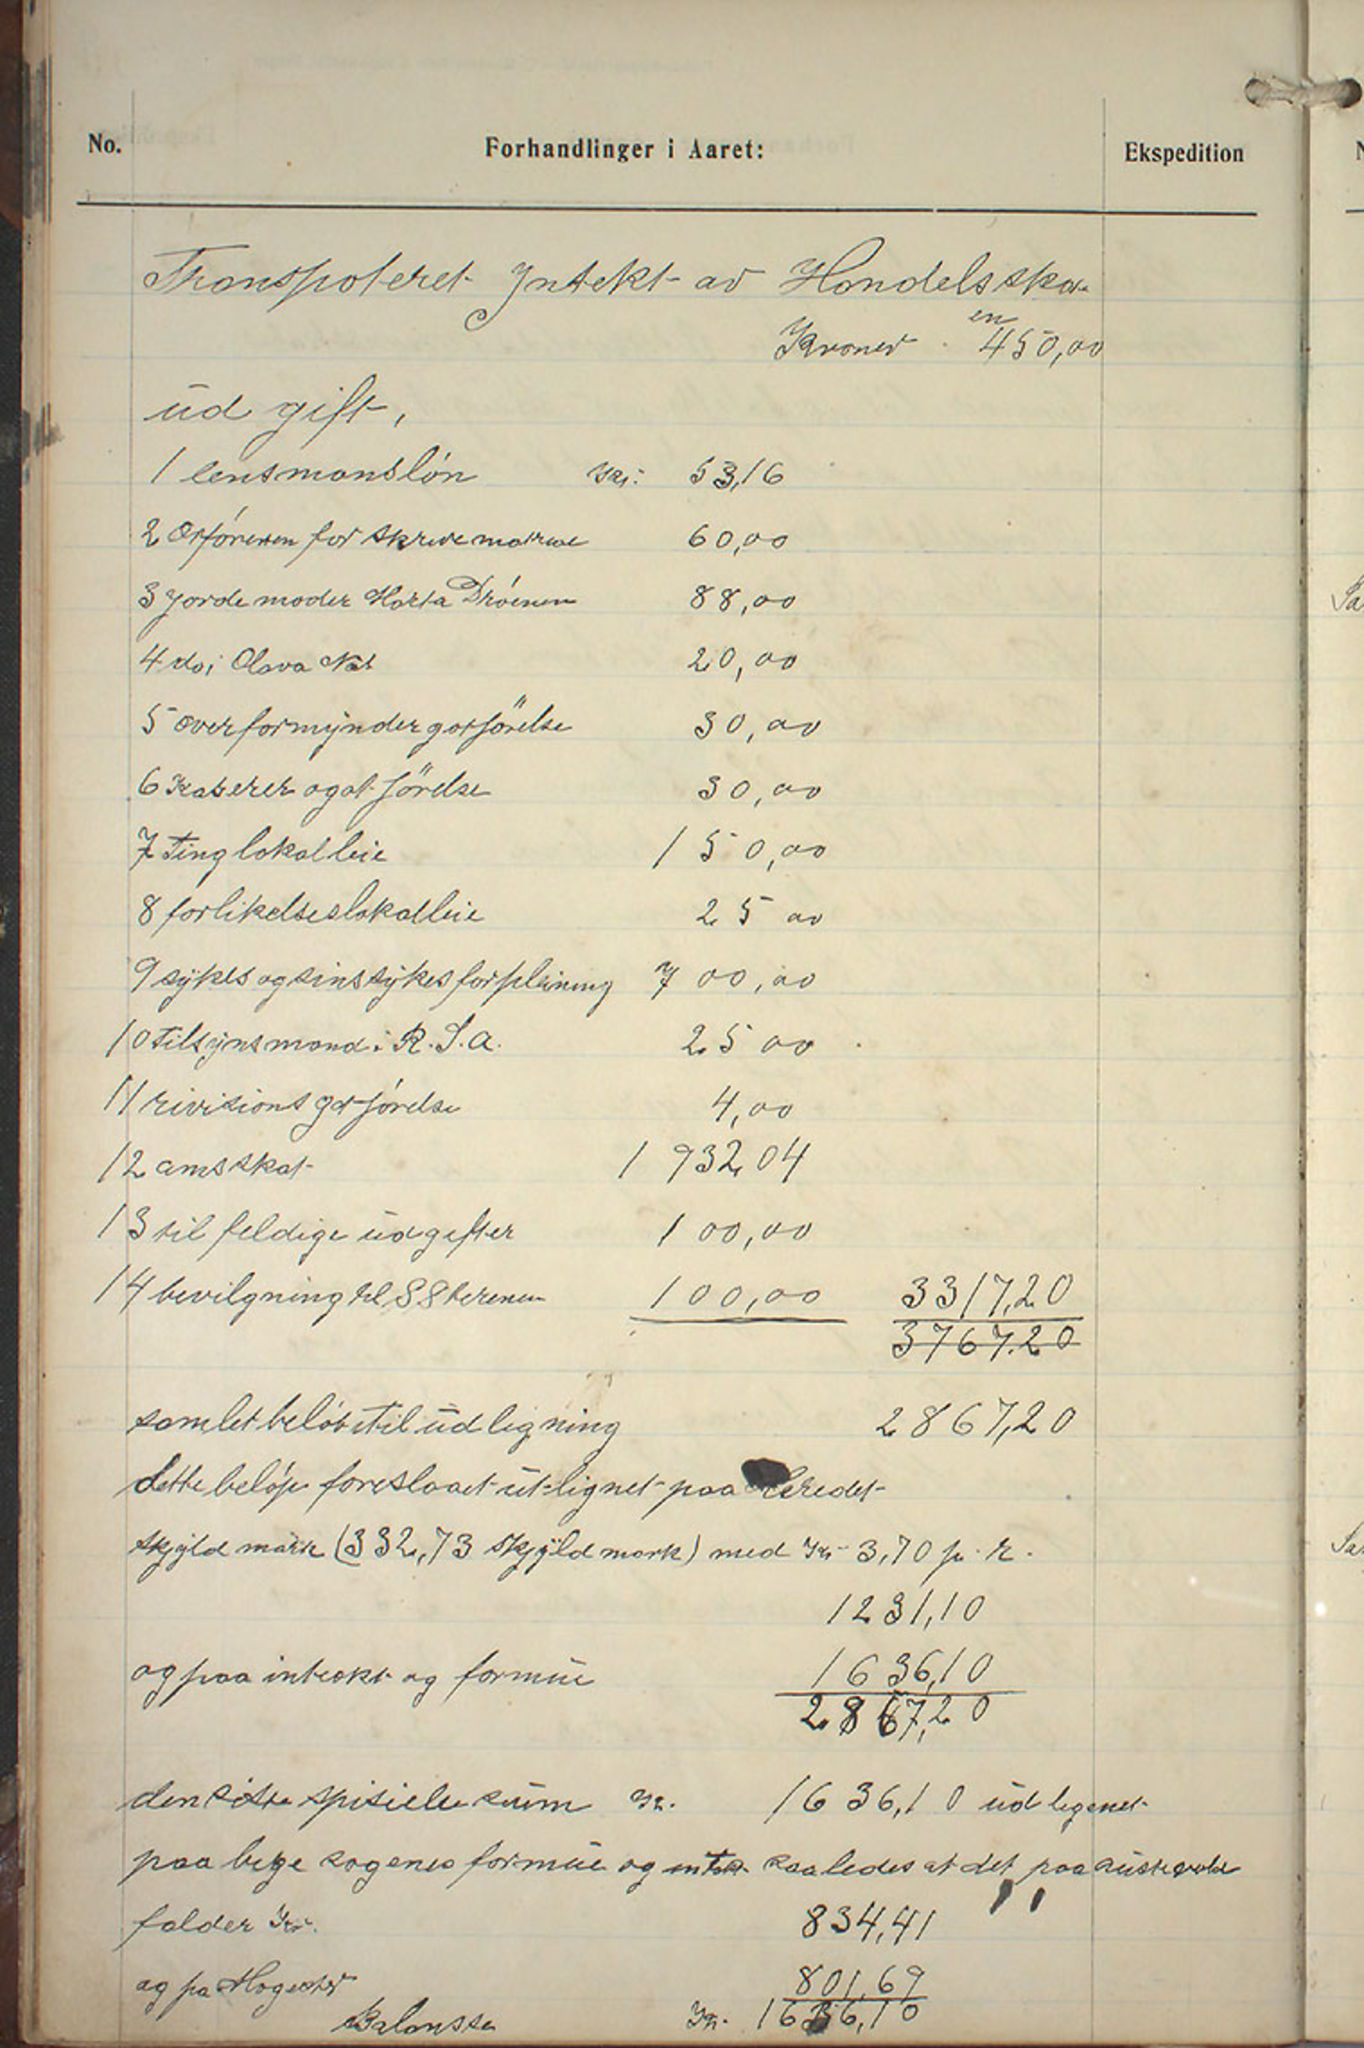 No. Forhandlinger i Aaret: Ekspedition
Transpoteret Yntekt av Handelsska
en
Kroner 450,00
üd gift,
1 lensmanslön Kr: 53,16
2 Orföreren for skrive 60,00
3 Jordemoder Marta 88,00
4 do; Olava 20,00
5 overformÿndergotjörelse 30,00
6 Kaserer ogot jörelse 30,00
7 Tinglokalleie 150,00
8 forlikelseslokalleie 25 00
9 sÿkes og sinssÿkes forpleining 700,00
10 tilsÿnsmand i R. S. A. 25 00
11 rivisions gotjörelse 4,00
12 amsskat 1932 04
13 til feldige üdgifter 100,00
14 bevilgning til 100,00 3317,20
3767,20
samlet til üdligning 2867,20
dette beløp foreslaaet ütlignet paa
skÿld mark (332,73 skjÿld mark) med Kr 3,70 p. r.
1231,10
og paa intekt og formüe 1636,10
2867,20
den siste spisielle süm Kr. 1636,10 üd ligenet
paa sogenes formüe og intekt saaledes at det paa
falder Kr. 834,41
og pa 801,69
Balansse Kr. 1636,10